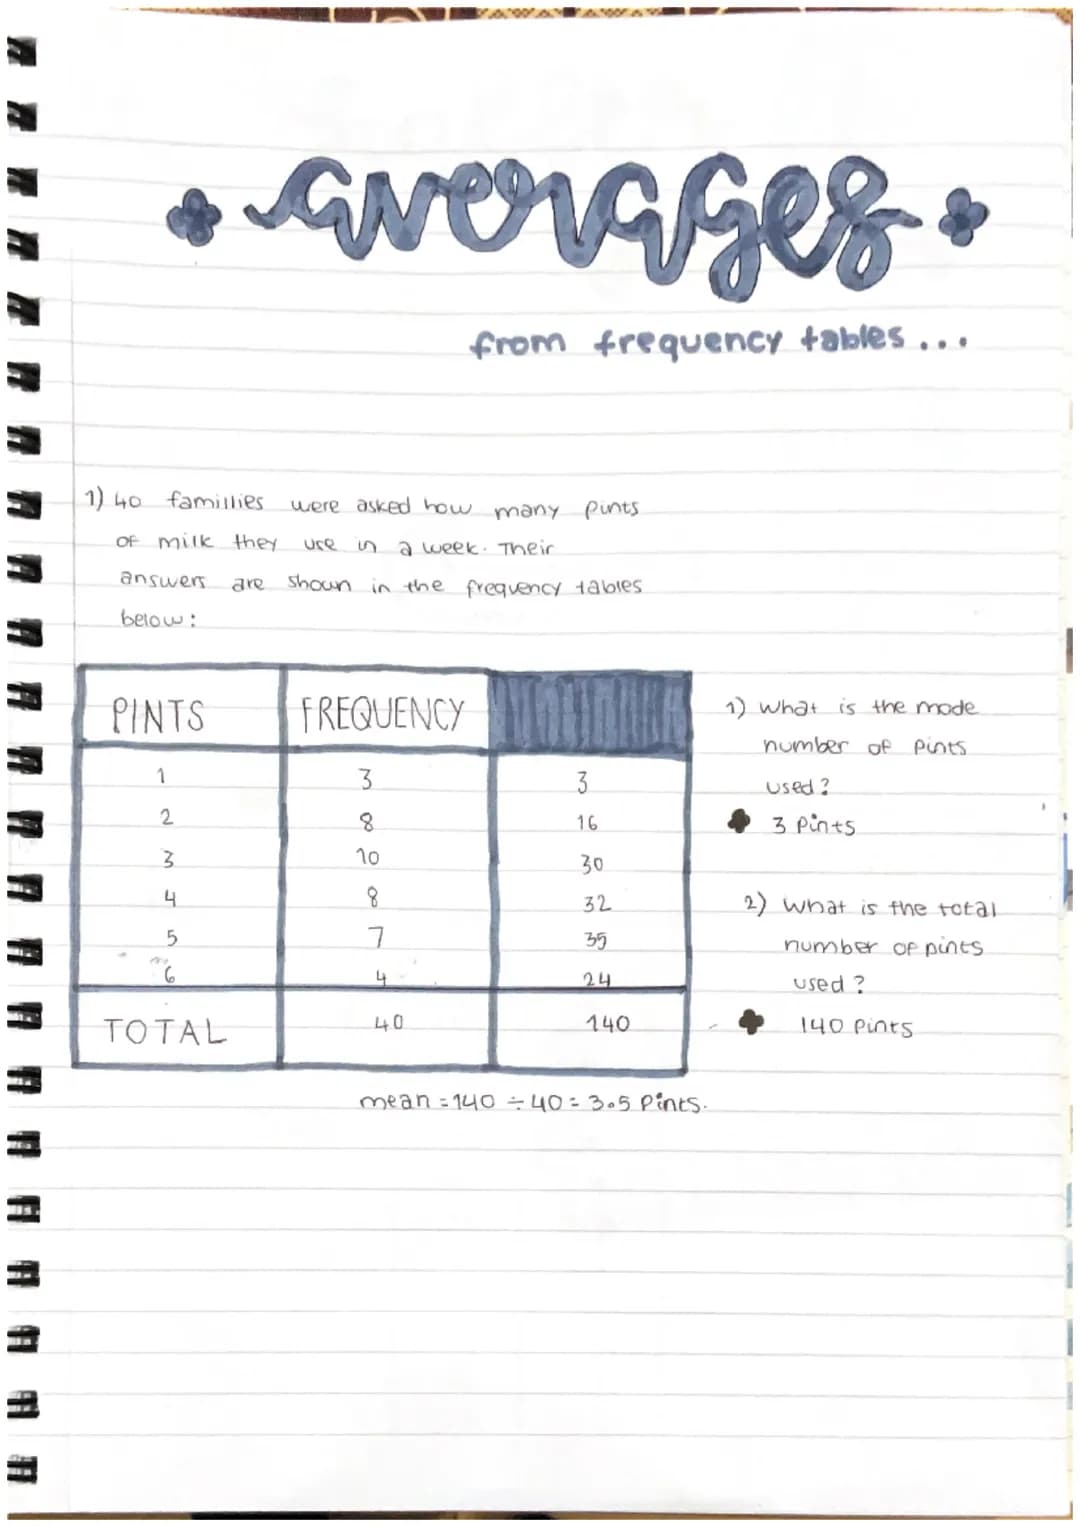 averages
from frequency tables...
1) 40 famillies were asked how many pints
of milk they use in a week. Their
answers are shown in the frequency tables
below:
PINTS FREQUENCY
1 3 3
2 8 16
3 10 30
4 8 32
5 7 35
6 4 24
TOTAL 40 140
mean = 140 ÷ 40 = 3.5 pints.
1) what is the mode
number of pints
used?
3 pints
2) what is the total
number of pints
used?
140 pints